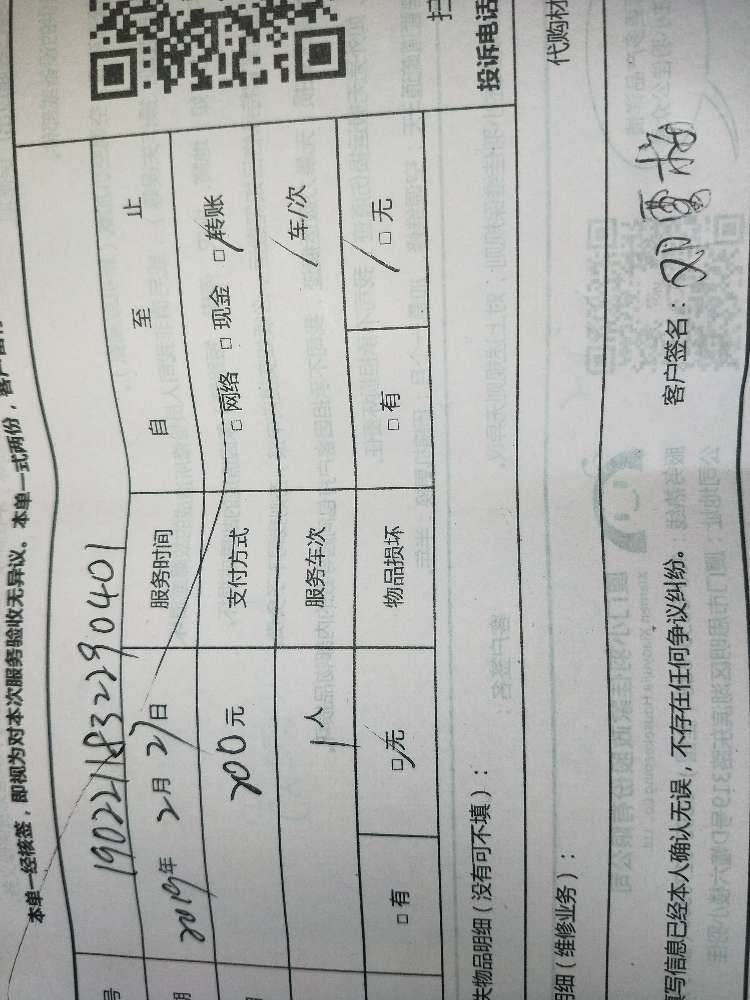 本单一经核签，即视为对本次服务验收无异议。本单一式两份，客户
号 1902211832290401
期 2019年 2月 27日 服务时间 自 至 止
200元 支付方式 □网络 □现金 □转账
1人 服务车次 / 车/次
□有 □无 物品损坏 □有 □无
失物品明细（没有可不填）：
投诉电话
扫
明细（维修业务）：
代购材
填写信息已经本人确认无误，不存在任何争议纠纷。 客户签名：